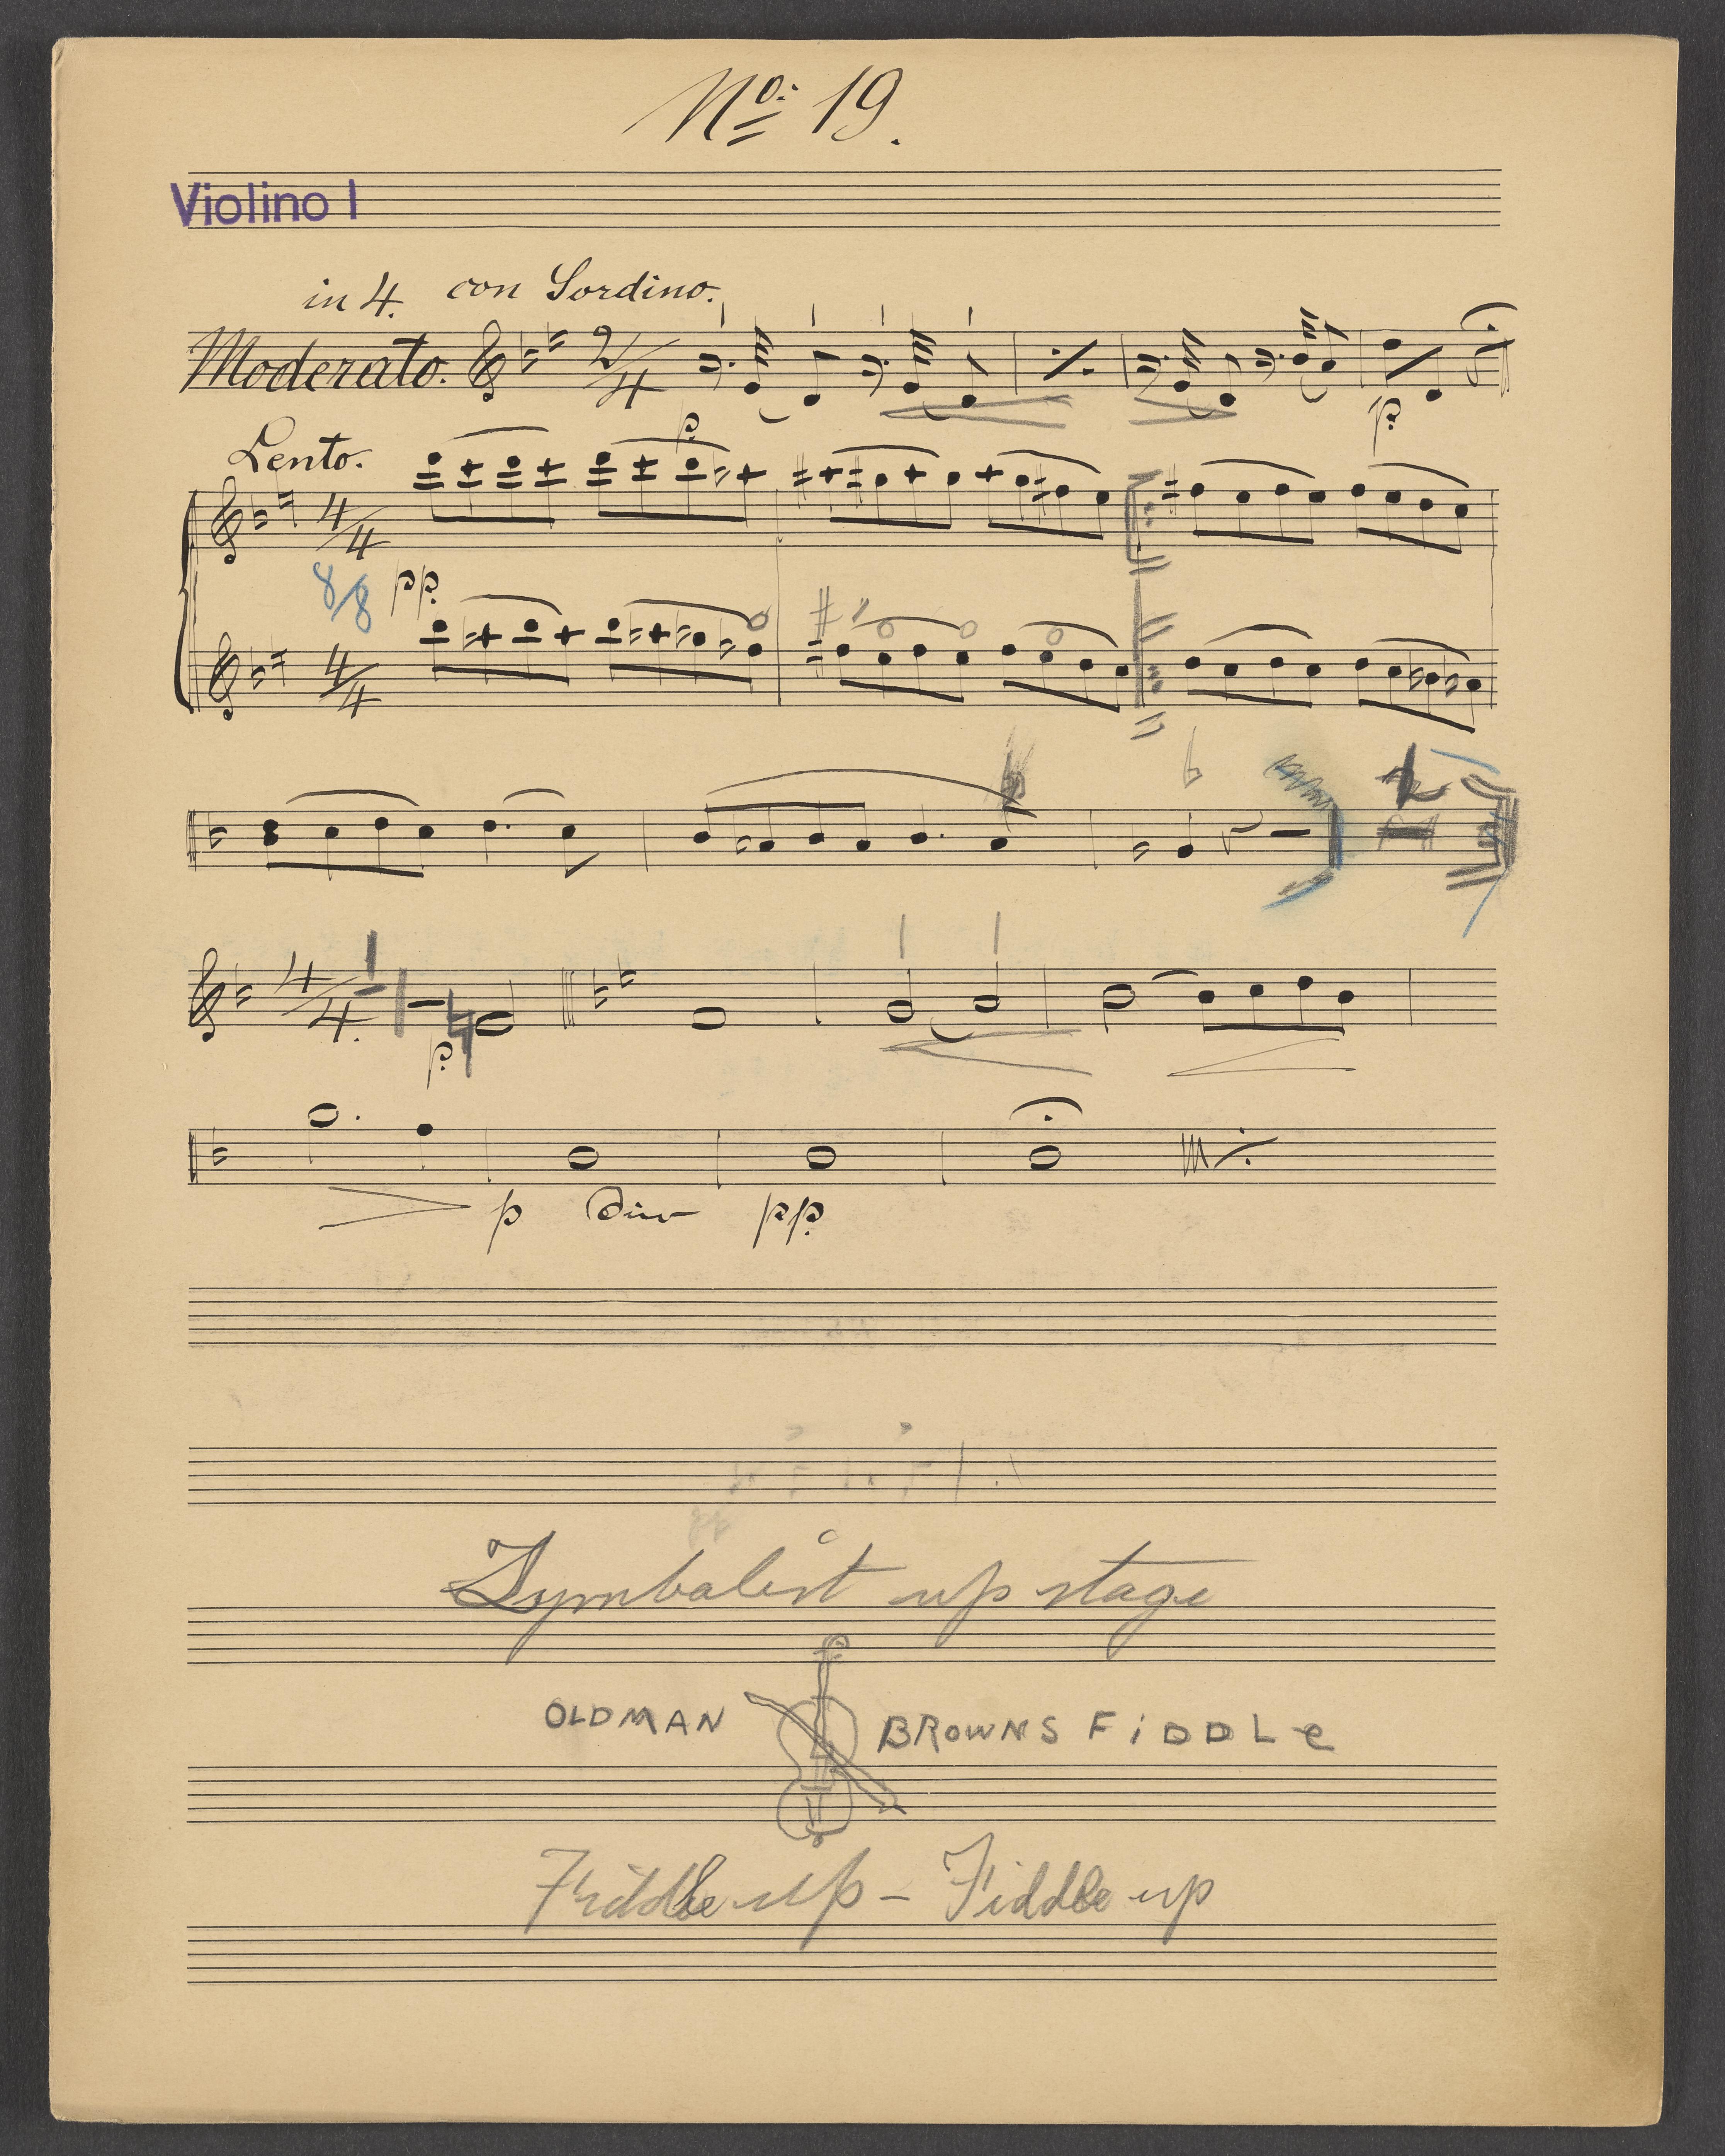 No: 19.
Violino I
in 4. con Sordino.
Moderato. 2/4
p.
p.
Lento.
4/4
8/8 pp.
4/4
4/4.
p.
p div pp.
Zymbalist up stage
OLDMAN BROWNS FiDDLe
Fiddle up - Fiddle up